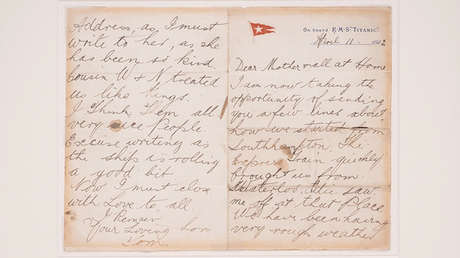 On board R.M.S. "TITANIC".
April 11. 1912
Dear Mother & all at Home
I am now taking the
opportunity of sending
you a few lines about
how we started from
Southhampton, The
Express Train quickly
brought us from
Waterloo. saw
me off at that Place
We have been having
very rough weather
Address, as I must
write to her, as she
has been so kind
Cousin W & N treated
us like kings.
I think them all
very nice People.
Excuse writeing as
the ship is rolling
a good bit
Now I must close
with Love to all
I Remain
Your Loving Son
Tom